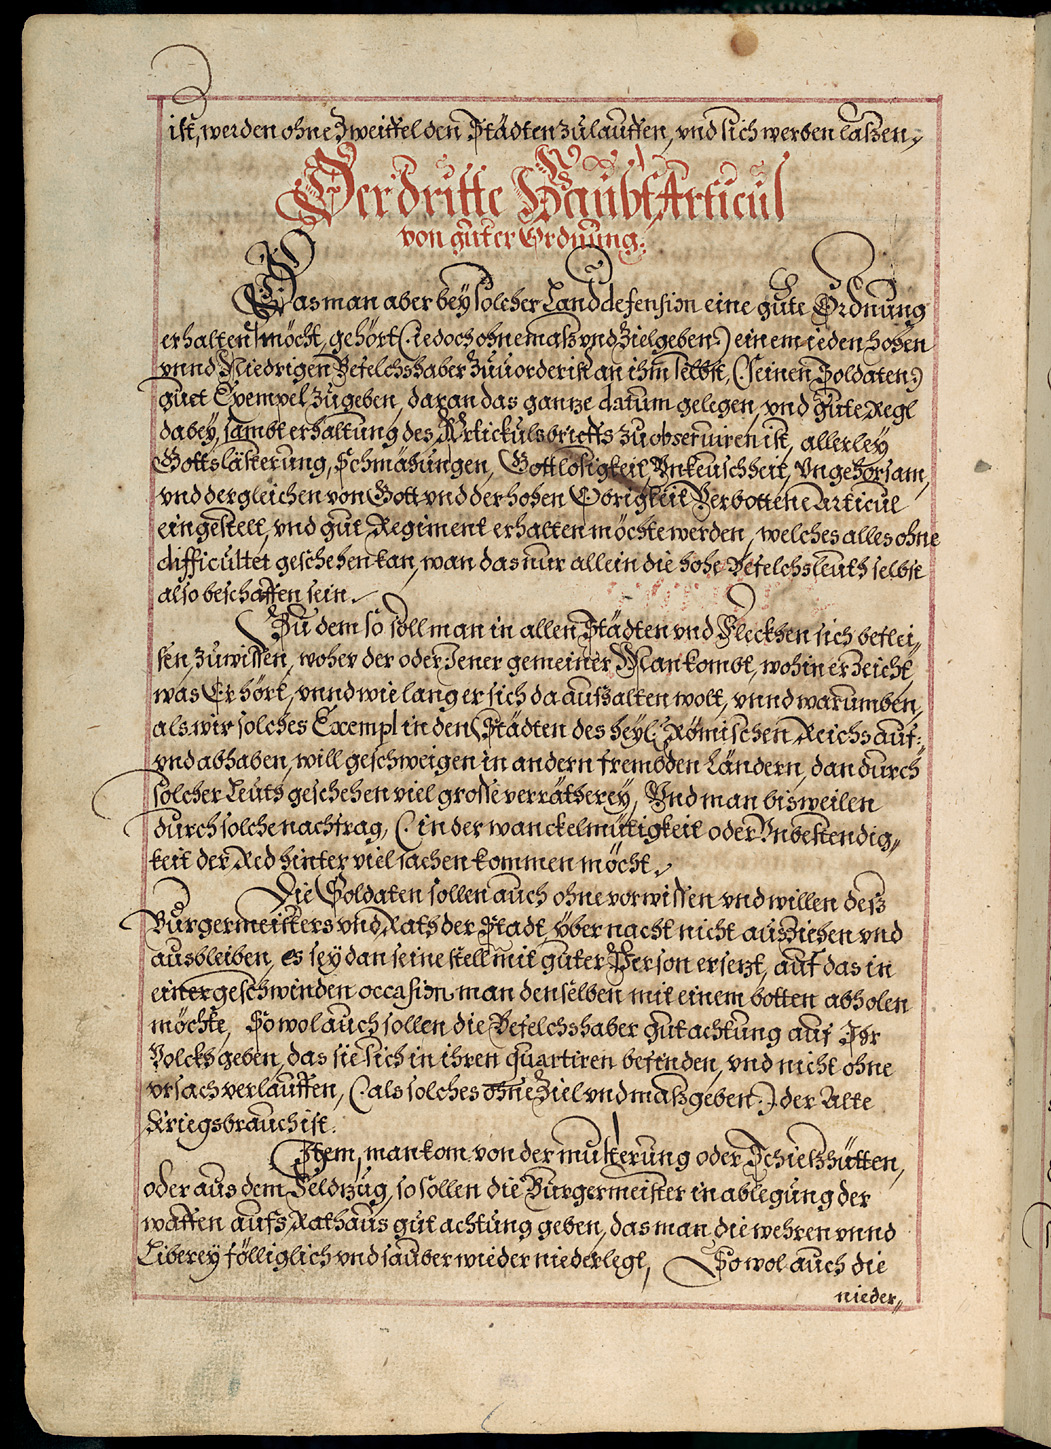 ist, werden ohne Zweiffel den Städten zulauffen, vnd sich werben laßen,
Der dritte Haubt Articul
von guter Ordnung.
Das man aber bey solcher Landdefension eine gute Ordnung
erhalten möcht, gehört (: iedoch ohne maß vnd Zielgeben :) einem ieden hohen
vnnd Niedrigen Befelchshaber zuuorderist an ihm selbst, (: seinen Soldaten :)
guet Exempel zu geben, daran das gantze datum gelegen, vnd gute Regl
dabey, sambt erhaltung des Artickulsbrieffs zu obseruiren ist, allerley
Gottslästerung, Schmähungen, Gottlosigkeit Vnkeuschheit, Vngehorsam,
vnd dergleichen von Gott vnd der hohen Obrigkeit Verbottene Articul
eingestelt, vnd gut Regiment erhalten möchte werden, welches alles ohne
difficultet geschehen kan, wan das nur allein die hohe Befelchsleuth selbst
also beschaffen sein.
Zu dem so soll man in allen Städten vnd Fleckhen sich beflei-
sen, zuwissen, woher der oder Jener gemeiner Man kombt, wohin er zeicht,
was Er hört, vnnd wie lang er sich da aufhalten wolt, vnnd warumben,
als wir solches Exempl in den Städten des heyl: Römischen Reichs auf:
vnd abhaben, will geschweigen in andern frembden Ländern, dan durch
solcher Leuth geschehen viel grosse verrätherey, Vnd man bisweilen
durch solche nachfrag, (: in der wanckelmüttigkeit oder Vnbestendig-
keit der Red hinter viel sachen kommen möcht.
Die Soldaten sollen auch ohne vorwissen vnd willen deß
Burgermeisters vnd Raths der Stadt, über nacht nicht ausziehen vnd
ausbleiben, es sey dan seine stell mit guter Person ersezt, auf das in
einer geschwinden occasion man denselben mit einem botten abholen
möchte, So wol auch sollen die Befelchshaber gut achtung auf Ihr
Volckh geben, das sie sich in ihren quartiren befinden, vnd nicht ohne
vrsach verlauffen, (: als solches ohne Ziel vnd maß geben :) der Alte
Kriegsbrauch ist.
Item, man kom von der musterung oder Schießhütten,
oder aus dem Feldzug, so sollen die Burgermeister in ablegung der
waffen aufs Rathaus gut achtung geben, das man die wehren vnnd
Liberey fölliglich vnd sauber wieder niederlegt, So wol auch die
nieder-